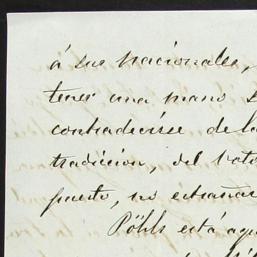 á sus nacionales,
tener una mano
contradecirse de la
tradicion, del
puerto, no estrañar
Pöhls está aqu